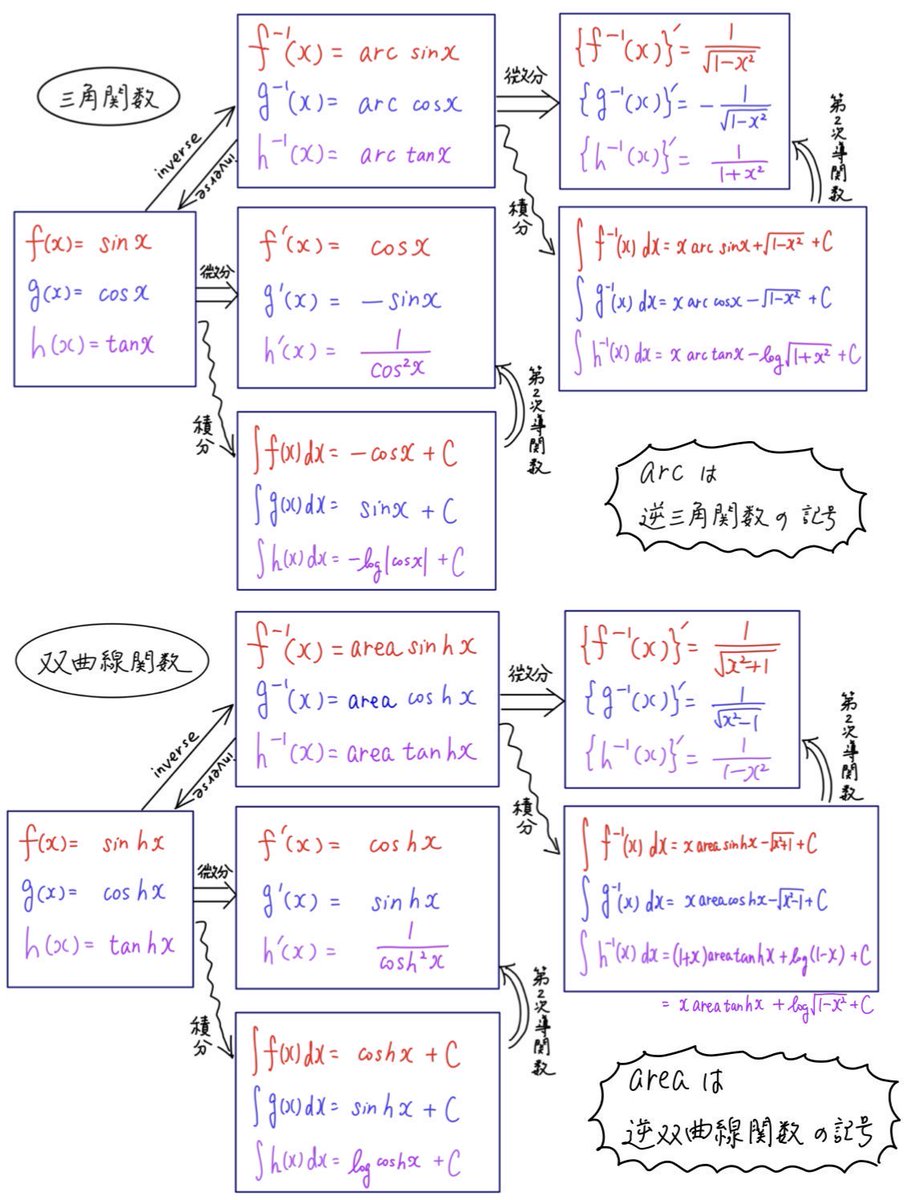 三角関数
f⁻¹(x) = arc sinx
g⁻¹(x) = arc cosx
h⁻¹(x) = arc tanx
微分
{f⁻¹(x)}′ = 1/√(1-x²)
{g⁻¹(x)}′ = -1/√(1-x²)
{h⁻¹(x)}′ = 1/(1+x²)
第2次導関数
inverse
inverse
積分
f(x) = sinx
g(x) = cosx
h(x) = tanx
微分
f′(x) = cosx
g′(x) = -sinx
h′(x) = 1/cos²x
∫f⁻¹(x)dx = x arc sinx + √(1-x²) + C
∫g⁻¹(x)dx = x arc cosx - √(1-x²) + C
∫h⁻¹(x)dx = x arc tanx - log√(1+x²) + C
積分
第2次導関数
∫f(x)dx = -cosx + C
∫g(x)dx = sinx + C
∫h(x)dx = -log|cosx| + C
arc は
逆三角関数の記号
双曲線関数
f⁻¹(x) = area sinhx
g⁻¹(x) = area coshx
h⁻¹(x) = area tanhx
微分
{f⁻¹(x)}′ = 1/√(x²+1)
{g⁻¹(x)}′ = 1/√(x²-1)
{h⁻¹(x)}′ = 1/(1-x²)
第2次導関数
inverse
inverse
積分
f(x) = sinhx
g(x) = coshx
h(x) = tanhx
微分
f′(x) = coshx
g′(x) = sinhx
h′(x) = 1/cosh²x
∫f⁻¹(x)dx = x area sinhx - √(x²+1) + C
∫g⁻¹(x)dx = x area coshx - √(x²-1) + C
∫h⁻¹(x)dx = (1+x)area tanhx + log(1-x) + C
= x area tanhx + log√(1-x²) + C
積分
第2次導関数
∫f(x)dx = coshx + C
∫g(x)dx = sinhx + C
∫h(x)dx = log coshx + C
area は
逆双曲線関数の記号